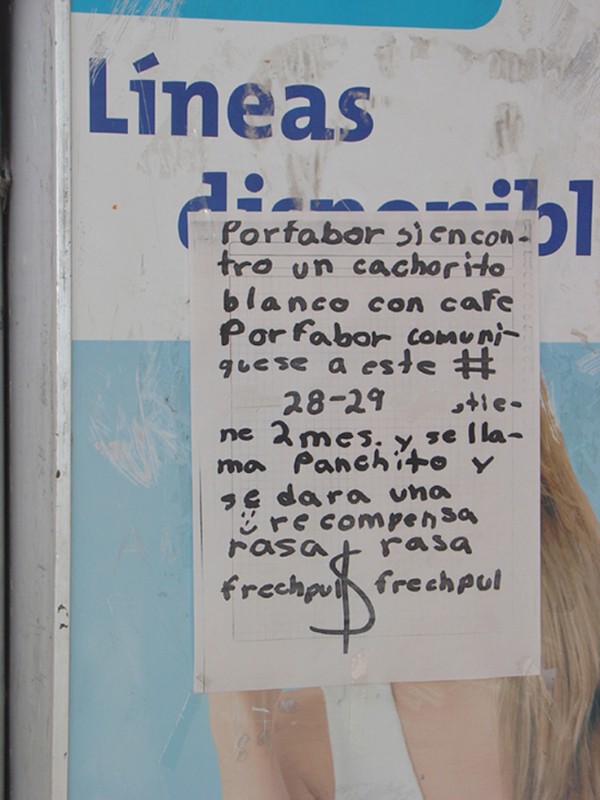 Líneas
disponibl
Porfabor si encon-
tro un cachorito
blanco con cafe
Porfabor comuni-
quese a este #
28-29 ,tie-
ne 2 mes. y se lla-
ma Panchito y
se dara una
recompensa
rasa $ rasa
frechpul frechpul